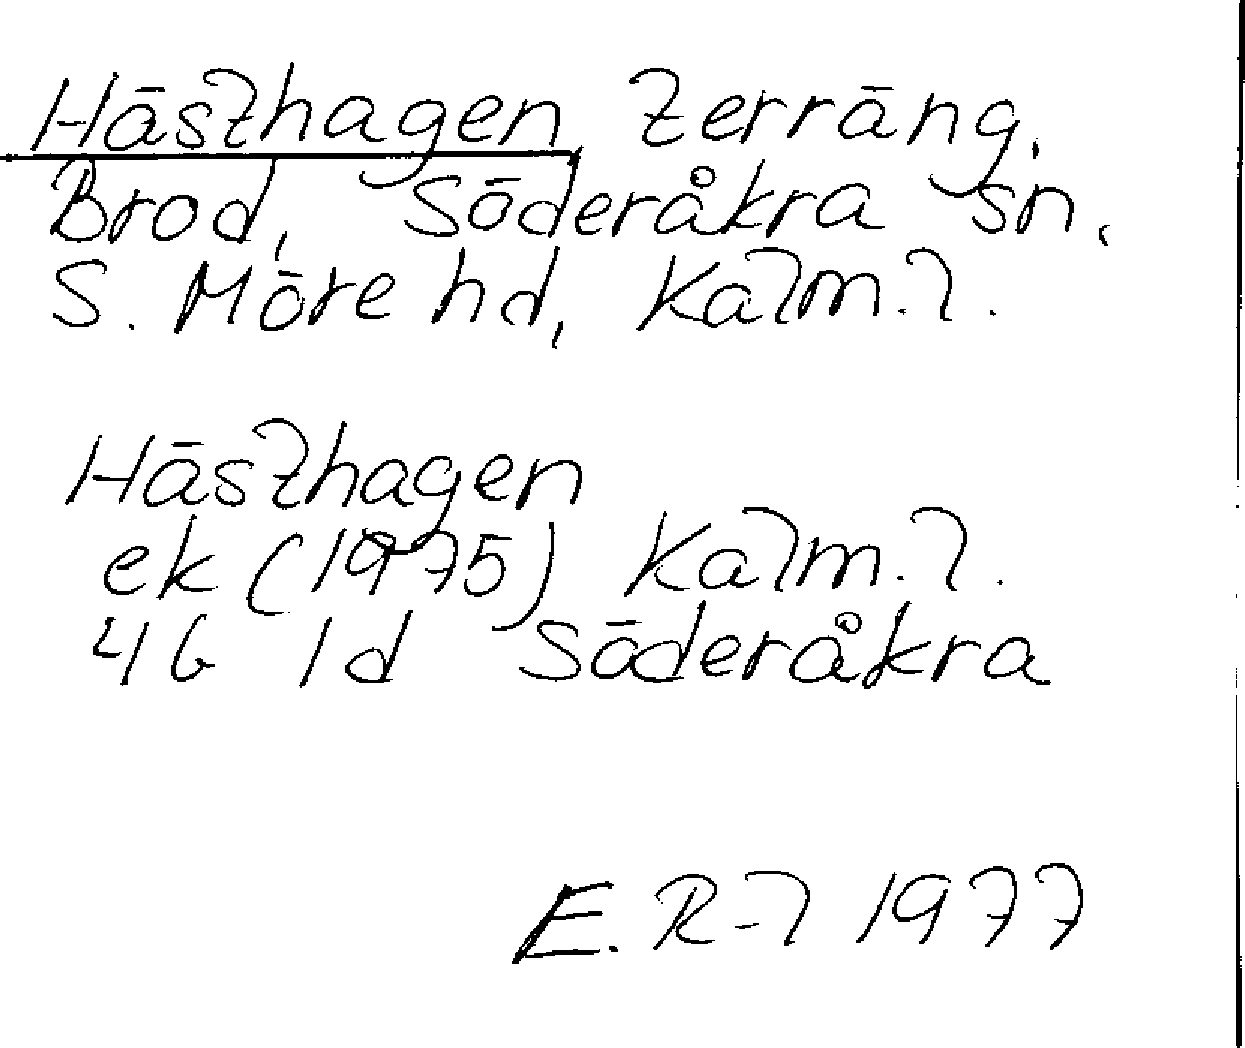 Hästhagen terräng.
Brod, Söderåkra sn.
S. Möre hd, Kalm. l.
Hästhagen
ek (1975) Kalm. l.
4G 1d Söderåkra
E. R-l 1977